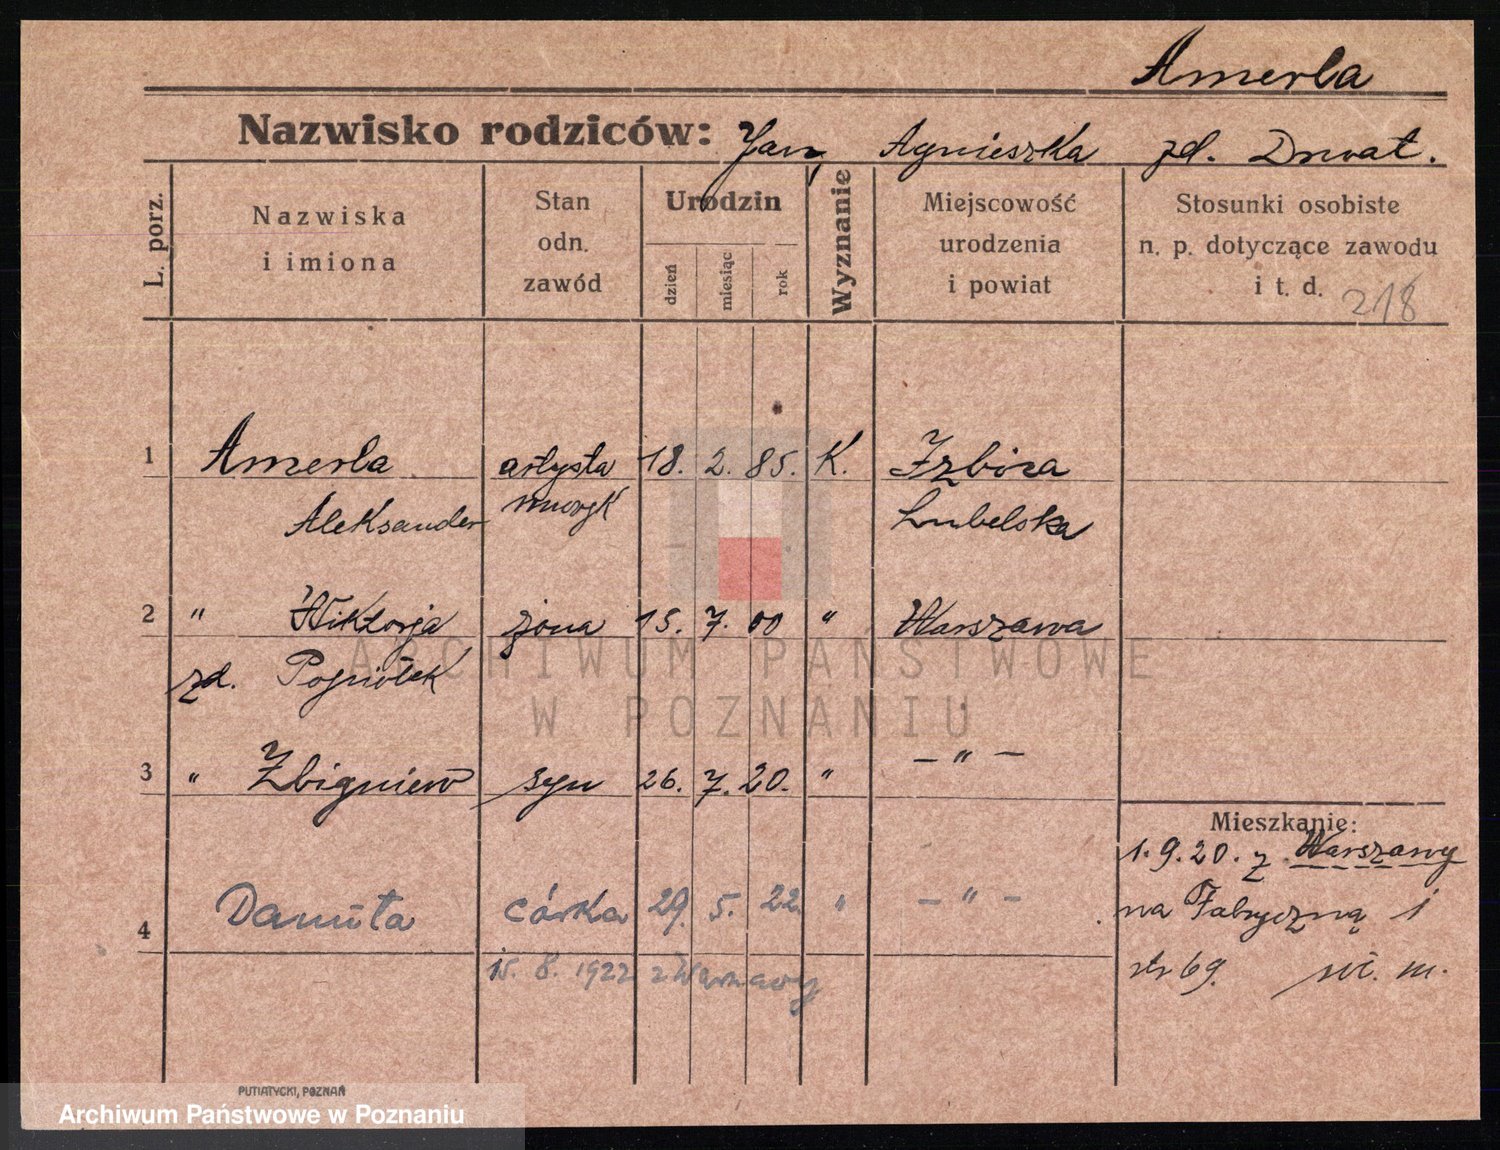 Amerla
Nazwisko rodziców: Jan, Agnieszka zd. Drwat.
L. porz.
Nazwiska
i imiona
Stan
odn.
zawód
Urodzin
dzień
miesiąc
rok
Wyznanie
Miejscowość
urodzenia
i powiat
Stosunki osobiste
n. p. dotyczące zawodu
i t. d.
218
1 Amerla artysta 18. 2. 85. K. Izbica
Aleksander muzyk Lubelska
2 " Wiktorja żona 15. 7. 00 " Warszawa
zd. Popiołek
3 " Zbigniew syn 26. 7. 20. " - " -
4 Danuta córka 29. 5. 22. " - " -
15. 8. 1922 z Warszawy
Mieszkanie:
1. 9. 20. z Warszawy
na Fabryczną 1
str 69. m.
PUTIATYCKI, POZNAŃ
ARCHIWUM PAŃSTWOWE
W POZNANIU
Archiwum Państwowe w Poznaniu